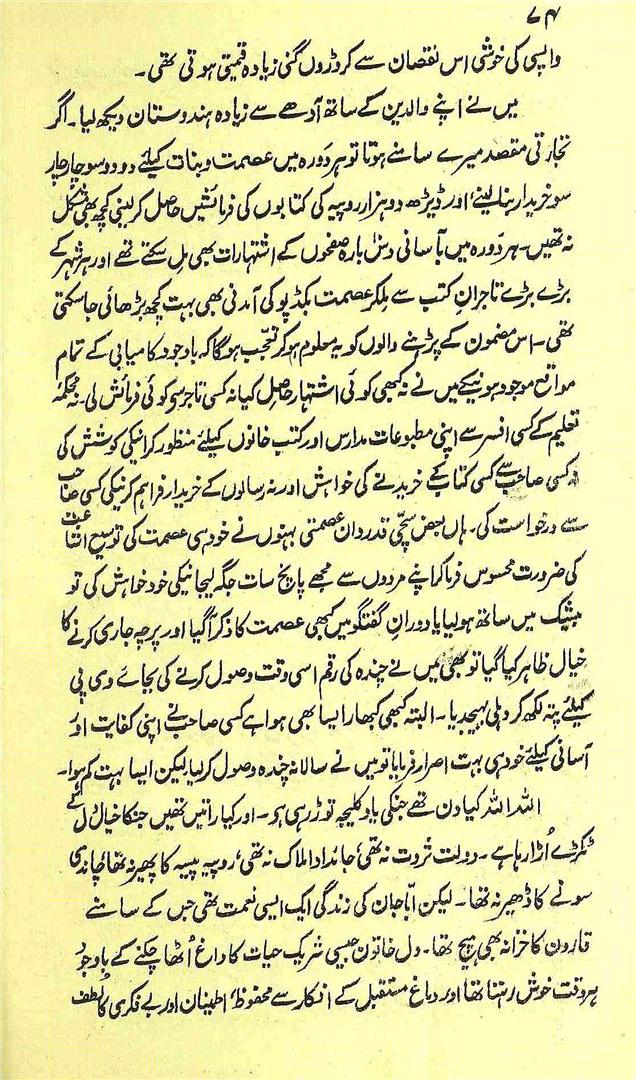 ۷۴
واپسی کی خوشی اس نقصان سے کروڑوں گنی زیادہ قیمتی ہوتی تھی۔
میں نے اپنے والدین کے ساتھ آدھے سے زیادہ ہندوستان دیکھ لیا۔ اگر
تجارتی مقصد میرے سامنے ہوتا تو ہر دَورہ میں عصمت و بنات کیلئے دو دو سو چار چار
سو خریدار بنا لینے، اور ڈیڑھ دو ہزار روپیہ کی کتابوں کی فرمائشیں حاصل کر لینی کچھ بھی مشکل
نہ تھیں۔ ہر دَورہ میں بآسانی دس بارہ صفحوں کے اشتہارات بھی مل سکتے تھے اور ہر شہر کے
بڑے بڑے تاجرانِ کتب سے ملکر عصمت بکڈپو کی آمدنی بھی بہت کچھ بڑھائی جا سکتی
تھی۔ اس مضمون کے پڑہنے والوں کو یہ معلوم ہو کر تعجب ہوگا کہ باوجود کامیابی کے تمام
مواقع موجود ہونیکے میں نے نہ کبھی کوئی اشتہار حاصل کیا نہ کسی تاجر سے کوئی فرمائش لی۔ نہ محکمۂ
تعلیم کے کسی افسر سے اپنی مطبوعات مدارس اور کتب خانوں کیلئے منظور کرانیکی کوشش کی
نہ کسی صاحب سے کسی کتاب کے خریدنے کی خواہش اور نہ رسالوں کے خریدار فراہم کرنیکی کسی صاحب
سے درخواست کی۔ ہاں بعض سچی قدردان عصمتی بہنوں نے خود ہی عصمت کی توسیع اشاعت
کی ضرورت محسوس فرما کر اپنے مردوں سے مجھے پانچ سات جگہ لیجانیکی خود خواہش کی تو
بیشک میں ساتھ ہو لیا یا دورانِ گفتگو میں کبھی عصمت کا ذکر آگیا اور پرچہ جاری کرنے کا
خیال ظاہر کیا گیا تو بھی میں نے چندہ کی رقم اسی وقت وصول کرنے کی بجائے وی پی
کیلئے پتہ لکھ کر دہلی بھیجدیا۔ البتہ کبھی کبھار ایسا بھی ہوا ہے کسی صاحب نے اپنی کفایت اور
آسانی کیلئے خود ہی بہت اصرار فرمایا تو میں نے سالانہ چندہ وصول کر لیا، لیکن ایسا بہت کم ہوا۔
اللہ اللہ کیا دن تھے جنکی یاد کلیجہ توڑ رہی ہو۔ اور کیا راتیں تھیں جنکا خیال دل کے
ٹکڑے اُڑا رہا ہے۔ دولت ثروت نہ تھی، جائداد املاک نہ تھی، روپیہ پیسہ کا پھیر نہ تھا، چاندی
سونے کا ڈھیر نہ تھا۔ لیکن ابّا جان کی زندگی ایک ایسی نعمت تھی جس کے سامنے
قارون کا خزانہ بھی ہیچ تھا۔ دل خاتون جیسی شریک حیات کا داغ اُٹھا چکنے کے باوجود
ہر وقت خوش رہتا تھا اور دماغ مستقبل کے افکار سے محفوظ، اطینان اور بے فکری کا لطف